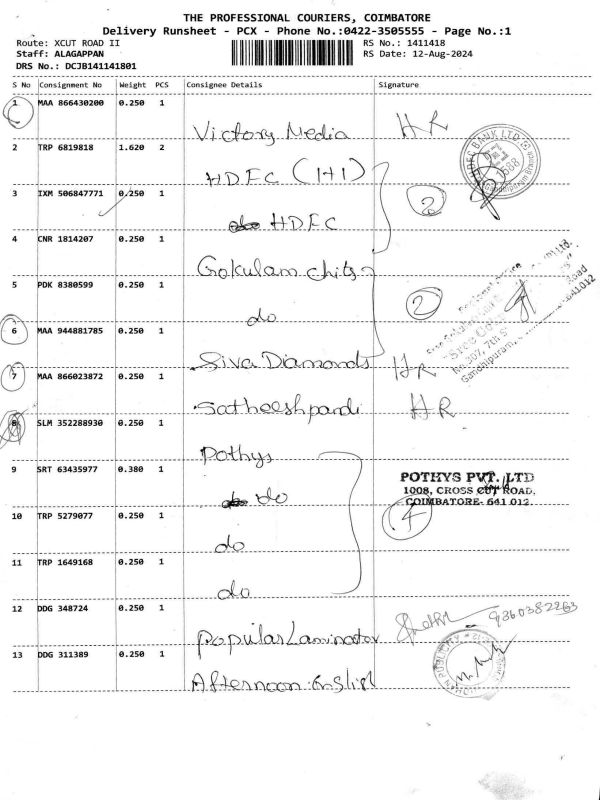 THE PROFESSIONAL COURIERS, COIMBATORE
Delivery Runsheet - PCX - Phone No.:0422-3505555 - Page No.:1
Route: XCUT ROAD II
RS No.: 1411418
Staff: ALAGAPPAN
RS Date: 12-Aug-2024
DRS No.: DCJB141141801
S No Consignment No Weight PCS Consignee Details Signature
1 MAA 866430200 0.250 1
Victory Media HR
2 TRP 6819818 1.620 2
HDFC (1+1)
3 IXM 506847771 0.250 1
HDFC
2
4 CNR 1814207 0.250 1
Gokulam chits
5 PDK 8380599 0.250 1
do
2
6 MAA 944881785 0.250 1
Siva Diamonds HR
7 MAA 866023872 0.250 1
Satheeshpandi HR
8 SLM 352288930 0.250 1
Pothys
9 SRT 63435977 0.380 1
do
POTHYS PVT. LTD
1008, CROSS CUT ROAD,
COIMBATORE- 641 012.
4
10 TRP 5279077 0.250 1
do
11 TRP 1649168 0.250 1
do
12 DDG 348724 0.250 1
Popular Laminator 9360382263
13 DDG 311389 0.250 1
Afternoon